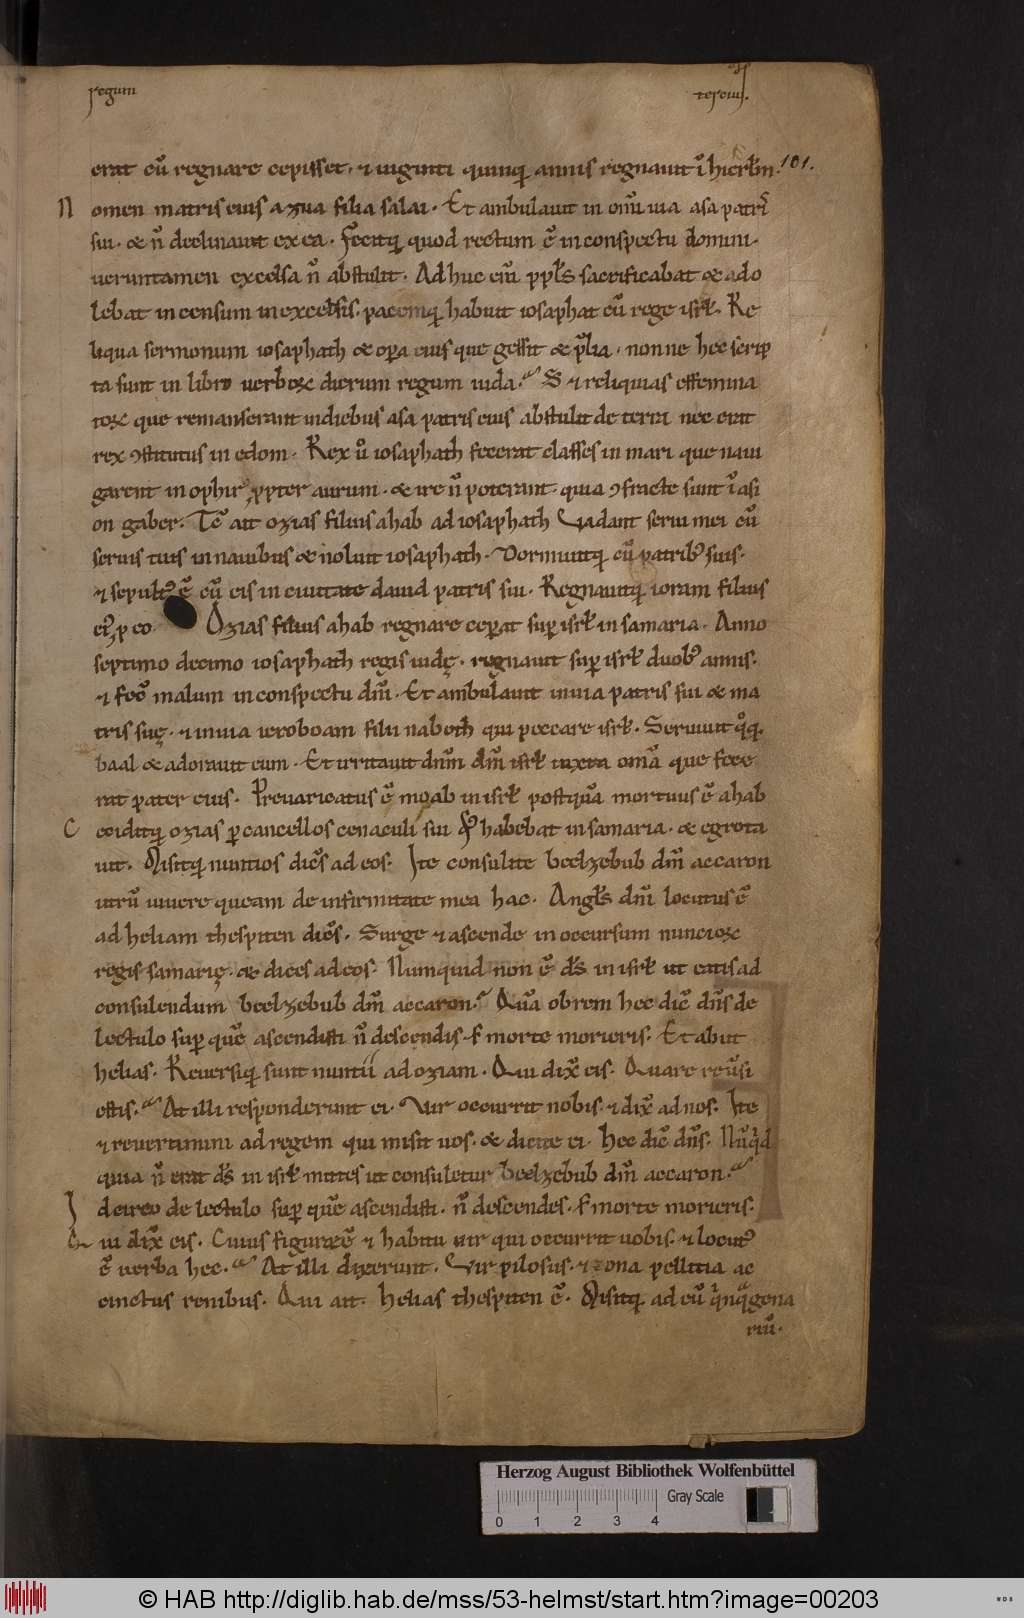 regum
tercius.
erat cū regnare cepisset. ⁊ uiginti quinq; annis regnauit ī hierłm. 101.
Nomen matris eius azua filia salai. Et ambulauit in om̄i uia asa patris
sui. & n̄ declinauit ex ea. Fecitq; quod rectum ē in conspectu domini.
ueruntamen excelsa n̄ abstulit. Adhuc eni͞m ppłs sacrificabat & ado
lebat incensum in excelsis. pacemq; habuit iosaphat cū rege isrł. Re
liqua sermonum iosaphath & opa eius que gessit & p̄lia. nonne hec scrip
ta sunt in libro uerboꝝ dierum regum iuda. S; ⁊ reliquias effemina
toꝝ que remanserant in diebus asa patris eius abstulit de terra nec erat
rex ꝯstitutus in edom. Rex u̇o iosaphath fecerat classes in mari que naui
garent in ophir ꝓpter aurum. & ire n̄ poterant. quia ꝯfracte sunt ī asi
on gaber. Tc̄ ait ozias filius ahab ad iosaphath Vadant serui mei cū
seruis tuis in nauibus & noluit iosaphath. Dormiuitq; cū patribꝰ suis.
⁊ sepultꝰ ē cū eis in ciuitate dauid patris sui. Regnauitq; ioram filius
eiꝰ p eo Ozias filius ahab regnare ceperat sup isrł in samaria. Anno
septimo decimo iosaphath regis iudę. regnauit sup isrł duobꝰ annis.
⁊ fec̄ malum in conspectu dn̄i. Et ambulauit in uia patris sui & ma
tris suę. ⁊ in uia ieroboam filii naboth qui peccare isrł. Seruiuit qͦq;
baal & adorauit eum. Et irritauit dn̄m dm̄ isrł iuxta omā que fece
rat pater eius. Preuaricatus ē moab in isrł postquā mortuus ē ahab
ceciditq; ozias p cancellos cenaculi sui qd̄ habebat in samaria. & egrota
uit. Misitq; nuntios dic̄s ad eos. Ite consulite beelzebub dm̄ accaron
utrū uiuere queam de infirmitate mea hac. Angłs dn̄i locutus ē
ad heliam thespiten dic̄s. Surge ⁊ ascende in occursum nuncioꝝ
regis samarię. & dices ad eos. Numquid non ē ds̄ in isrł ut eatis ad
consulendum beelzebub dm̄ accaron. Quā obrem hec dic̄ dn̄s de
lectulo sup quē ascendisti n̄ descendis. s; morte morieris. Et abiit
helias. Reuersiq; sunt nuntii ad oziam. Qui dix̄ eis. Quare reu̇si
estis. At illi responderunt ei. Vir occurrit nobis. ⁊ dix̄ ad nos. Ite
⁊ reuertimini ad regem qui misit uos. & dicite ei. Hec dic̄ dn̄s. Nūqͥd
quia n̄ erat ds̄ in isrł mittes ut consuletur beelzebub dm̄ accaron.
Idcirco de lectulo sup quē ascendisti. n̄ descendes. s; morte morieris.
Qui dix̄ eis. Cuius figurae ē ⁊ habitu uir qui occurrit uobis. ⁊ locutꝰ
ē uerba hec. At illi dixerunt. Vir pilosus. ⁊ zona pellitia ac
cinctus renibus. Qui ait. Helias thespiten ē. Misitq; ad eū qͥnqͣgena
riū.
Herzog August Bibliothek Wolfenbüttel
Gray Scale
0 1 2 3 4
© HAB http://diglib.hab.de/mss/53-helmst/start.htm?image=00203